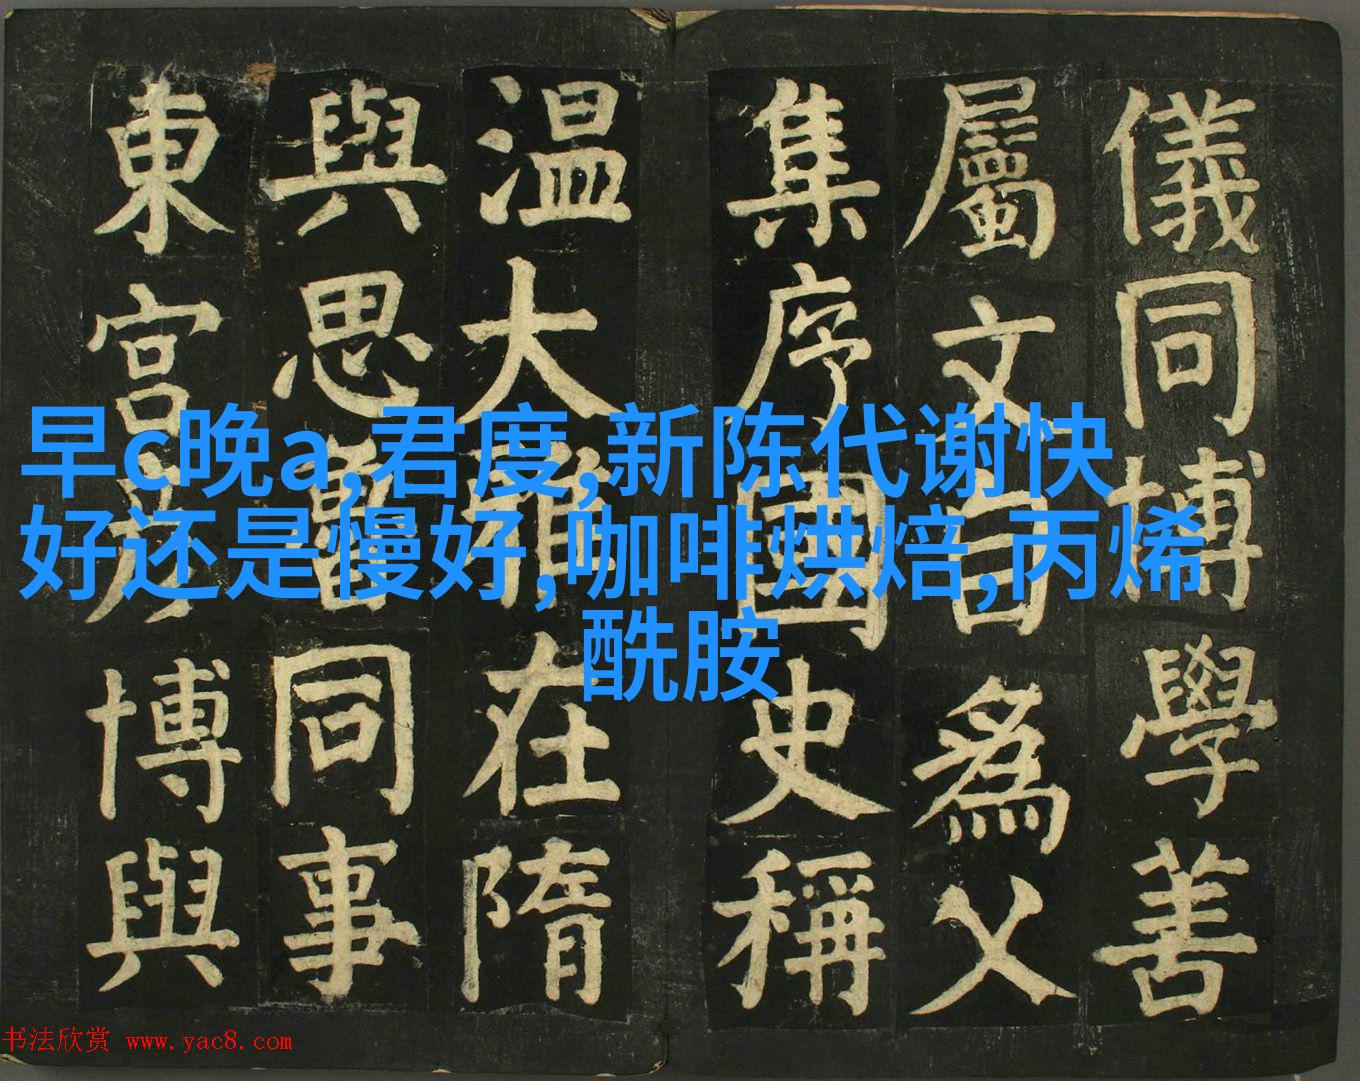 儀同博學善
屬文為父
集序國史稱
温大雅在隋
與思同事
東宮博與
早c晚a,君度,新陈代谢快
好还是慢好,咖啡烘焙,丙烯
酰胺
书法欣赏 www.yac8.com